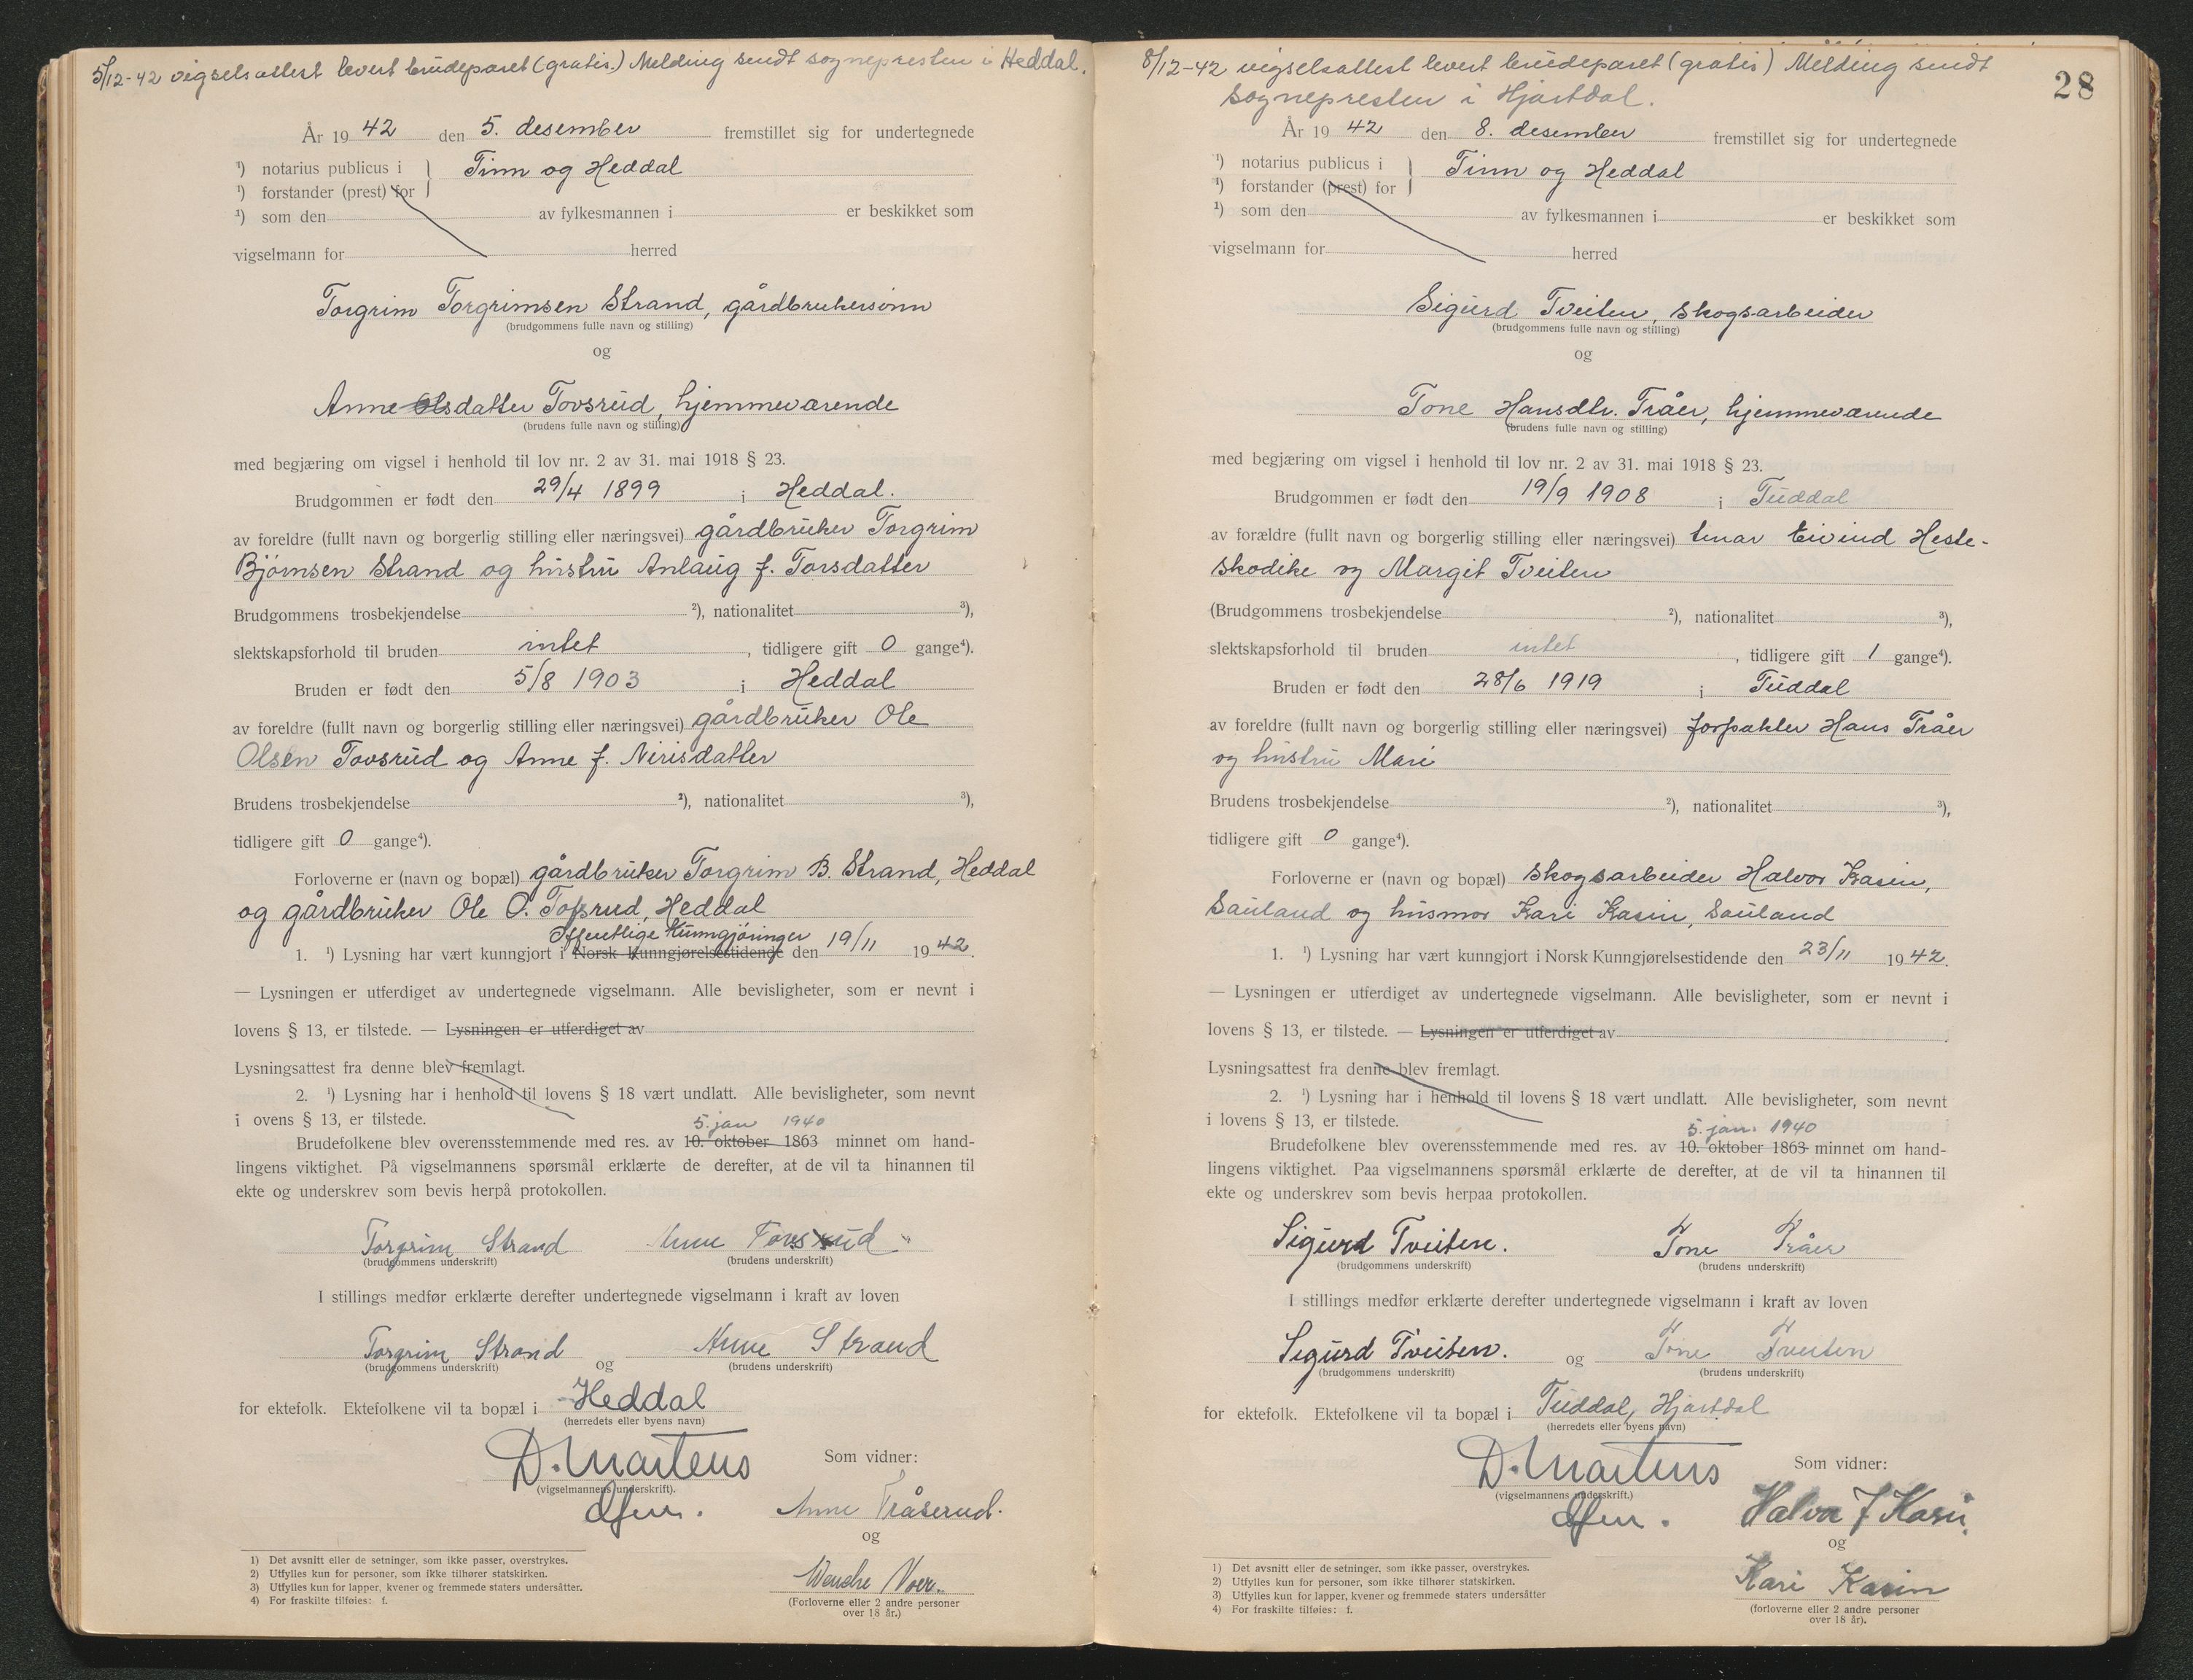 5/12-42 vigselsattest levert brudeparet (gratis.) Melding sendt sognepresten i Heddal.
År 19 42 den 5. desember fremstillet sig for undertegnede
¹) notarius publicus i } Tinn og Heddal
¹) forstander (prest) for
¹) som den av fylkesmannen i er beskikket som
vigselmann for herred
Torgrim Torgrimsen Strand, gårdbrukersønn
(brudgommens fulle navn og stilling)
og
Anne Olsdatter Tovsrud, hjemmeværende
(brudens fulle navn og stilling)
med begjæring om vigsel i henhold til lov nr. 2 av 31. mai 1918 § 23.
Brudgommen er født den 29/4 1899 i Heddal.
av foreldre (fullt navn og borgerlig stilling eller næringsvei) gårdbruker Torgrim
Bjørnsen Strand og hustru Anlaug f. Torsdatter
Brudgommens trosbekjendelse ²), nationalitet ³),
slektskapsforhold til bruden intet, tidligere gift 0 gange⁴).
Bruden er født den 5/8 1903 i Heddal
av foreldre (fullt navn og borgerlig stilling eller næringsvei) gårdbruker Ole
Olsen Tovsrud og Anne f. Nirisdatter
Brudens trosbekjendelse ²), nationalitet ³),
tidligere gift 0 gange⁴).
Forloverne er (navn og bopæl) gårdbruker Torgrim B. Strand, Heddal
og gårdbruker Ole O. Tofsrud, Heddal
Offentlige Kunngjøringer
1. ¹) Lysning har vært kunngjort i Norsk Kunngjørelsestidende den 19/11 1942.
— Lysningen er utferdiget av undertegnede vigselmann. Alle bevisligheter, som er nevnt i
lovens § 13, er tilstede. — Lysningen er utferdiget av
Lysningsattest fra denne blev fremlagt.
2. ¹) Lysning har i henhold til lovens § 18 vært undlatt. Alle bevisligheter, som nevnt
i ovens § 13, er tilstede.
5. jan 1940
Brudefolkene blev overensstemmende med res. av 10. oktober 1863 minnet om hand-
lingens viktighet. På vigselmannens spørsmål erklærte de derefter, at de vil ta hinannen til
ekte og underskrev som bevis herpå protokollen.
Torgrim Strand Anne Tovsrud
(brudgommens underskrift) (brudens underskrift)
I stillings medfør erklærte derefter undertegnede vigselmann i kraft av loven
Torgrim Strand og Anne Strand
(brudgommens underskrift) (brudens underskrift)
for ektefolk. Ektefolkene vil ta bopæl i Heddal
(herredets eller byens navn)
D. Martens Som vidner:
(vigselmannens underskrift).
dfm. Anne Tråserud.
og
Wenche Voer.
(Forloverne eller 2 andre personer
over 18 år.)
1) Det avsnitt eller de setninger, som ikke passer, overstrykes.
2) Utfylles kun for personer, som ikke tilhører statskirken.
3) Utfylles kun for lapper, kvener og fremmede staters undersåtter.
4) For fraskilte tilføies: f.
8/12-42 vigselsattest levert brudeparet (gratis) Melding sendt
sognepresten i Hjartdal.
28
År 19 42 den 8. desember fremstillet sig for undertegnede
¹) notarius publicus i } Tinn og Heddal
¹) forstander (prest) for
¹) som den av fylkesmannen i er beskikket som
vigselmann for herred
Sigurd Tveiten, skogsarbeider
(brudgommens fulle navn og stilling)
og
Tone Hansdtr. Tråer, hjemmeværende
(brudens fulle navn og stilling)
med begjæring om vigsel i henhold til lov nr. 2 av 31. mai 1918 § 23.
Brudgommen er født den 19/9 1908 i Tuddal
av foreldre (fullt navn og borgerlig stilling eller næringsvei) tenar Eivind Heste-
skodike og Margit Tveiten
(Brudgommens trosbekjendelse ²), nationalitet ³),
slektskapsforhold til bruden intet, tidligere gift 1 gange⁴).
Bruden er født den 28/6 1919 i Tuddal
av foreldre (fullt navn og borgerlig stilling eller næringsvei) forpakter Hans Tråer
og hustru Mari
Brudens trosbekjendelse ²), nationalitet ³),
tidligere gift 0 gange⁴).
Forloverne er (navn og bopæl) skogsarbeider Halvor Kasin,
Sauland og husmor Kari Kasin, Sauland
1. ¹) Lysning har vært kunngjort i Norsk Kunngjørelsestidende den 23/11 1942.
— Lysningen er utferdiget av undertegnede vigselmann. Alle bevisligheter, som er nevnt i
lovens § 13, er tilstede. — Lysningen er utferdiget av
Lysningsattest fra denne blev fremlagt.
2. ¹) Lysning har i henhold til lovens § 18 vært undlatt. Alle bevisligheter, som nevnt
i lovens § 13, er tilstede.
5. jan. 1940
Brudefolkene blev overensstemmende med res. av 10. oktober 1863 minnet om hand-
lingens viktighet. Paa vigselmannens spørsmål erklærte de derefter, at de vil ta hinannen til
ekte og underskrev som bevis herpaa protokollen.
Sigurd Tveiten. Tone Tråer
(brudgommens underskrift) (brudens underskrift)
I stillings medfør erklærte derefter undertegnede vigselmann i kraft av loven
Sigurd Tveiten. og Tone Tveiten
(brudgommens underskrift) (brudens underskrift)
for ektefolk. Ektefolkene vil ta bopæl i Tuddal, Hjartdal
(herredets eller byens navn)
D. Martens Som vidner:
(vigselmannens underskrift.)
dfm. Halvor J Kasin.
og
Kari Kasin
(forloverne eller 2 andre personer
over 18 år).
1) Det avsnitt eller de setninger, som ikke passer, overstrykes.
2) Utfylles kun for personer, som ikke tilhører statskirken.
3) Utfylles kun for lapper, kvener og fremmede staters undersåtter
4) For fraskilte tilføies: f.